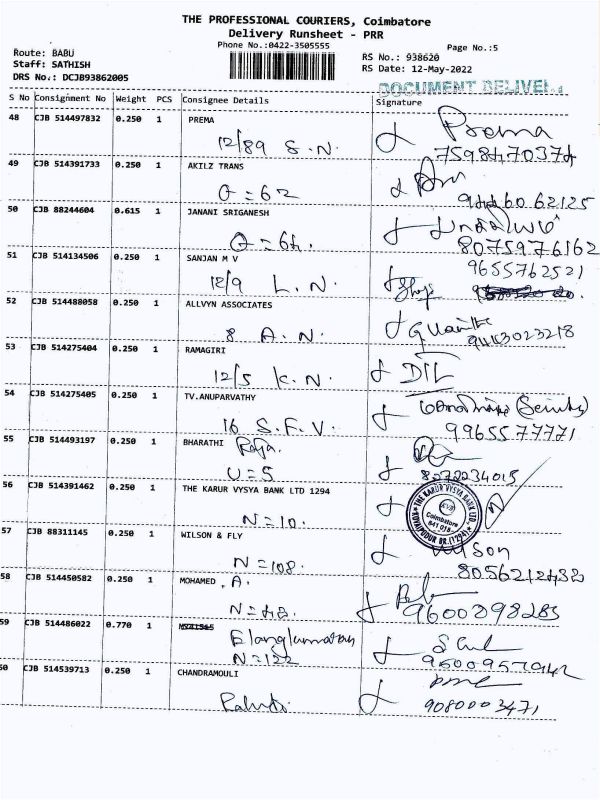 THE PROFESSIONAL COURIERS, Coimbatore
Delivery Runsheet - PRR
Phone No.:0422-3505555
Page No.:5
Route: BABU
Staff: SATHISH
DRS No.: DCJB93862005
RS No.: 938620
RS Date: 12-May-2022
DOCUMENT DELIVER
S No Consignment No Weight PCS Consignee Details Signature
48 CJB 514497832 0.250 1 PREMA Prema
12/89 S.N. 7598470374
49 CJB 514391733 0.250 1 AKILZ TRANS
O = 62
50 CJB 88244604 0.615 1 JANANI SRIGANESH
O = 64. 8075976162
51 CJB 514134506 0.250 1 SANJAN M V 9655762521
12/9 L.N.
52 CJB 514488058 0.250 1 ALLVYN ASSOCIATES
8 A.N. 9443023218
53 CJB 514275404 0.250 1 RAMAGIRI
12/5 K.N.
54 CJB 514275405 0.250 1 TV.ANUPARVATHY
16 S.F.V. 9965577771
55 CJB 514493197 0.250 1 BHARATHI Raja
U = 5
56 CJB 514391462 0.250 1 THE KARUR VYSYA BANK LTD 1294
THE KARUR VYSYA BANK LTD.
KVB
Coimbatore
641 018
N = 10.
57 CJB 88311145 0.250 1 WILSON & FLY
N = 108.
58 CJB 514450582 0.250 1 MOHAMED . A.
N = 48. 9600898285
59 CJB 514486022 0.770 1
N = 122
60 CJB 514539713 0.250 1 CHANDRAMOULI
9080003471